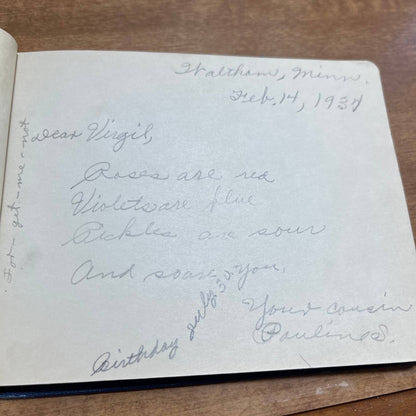 Waltham, Minn.
Feb. 14, 1934
Dear Virgil,
Roses are red
Violets are blue
Pickles are sour
And so are you.
Your cousin
(Pauline S.)
Birthday July 30.
For-get-me-not